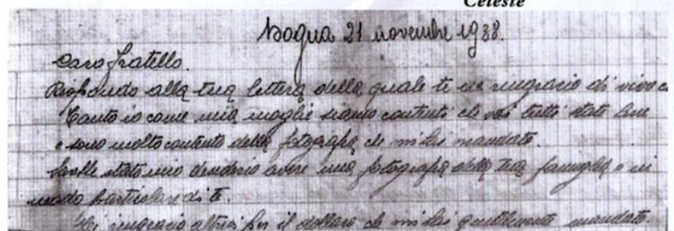 Celeste
Bogna 21 novembre 1938.
Caro fratello.
Rispondo alla tua lettera della quale te ne ringrazio di vivo c
Tanto io come mia moglie siamo contenti che voi tutti state bene
e sono molto contento della fotografia che mi hai mandato.
Sarebbe stato mio desiderio avere una fotografia della tua famiglia e in
modo particolare di te.
ringrazio per il dollaro che mi hai gentilmente mandato.